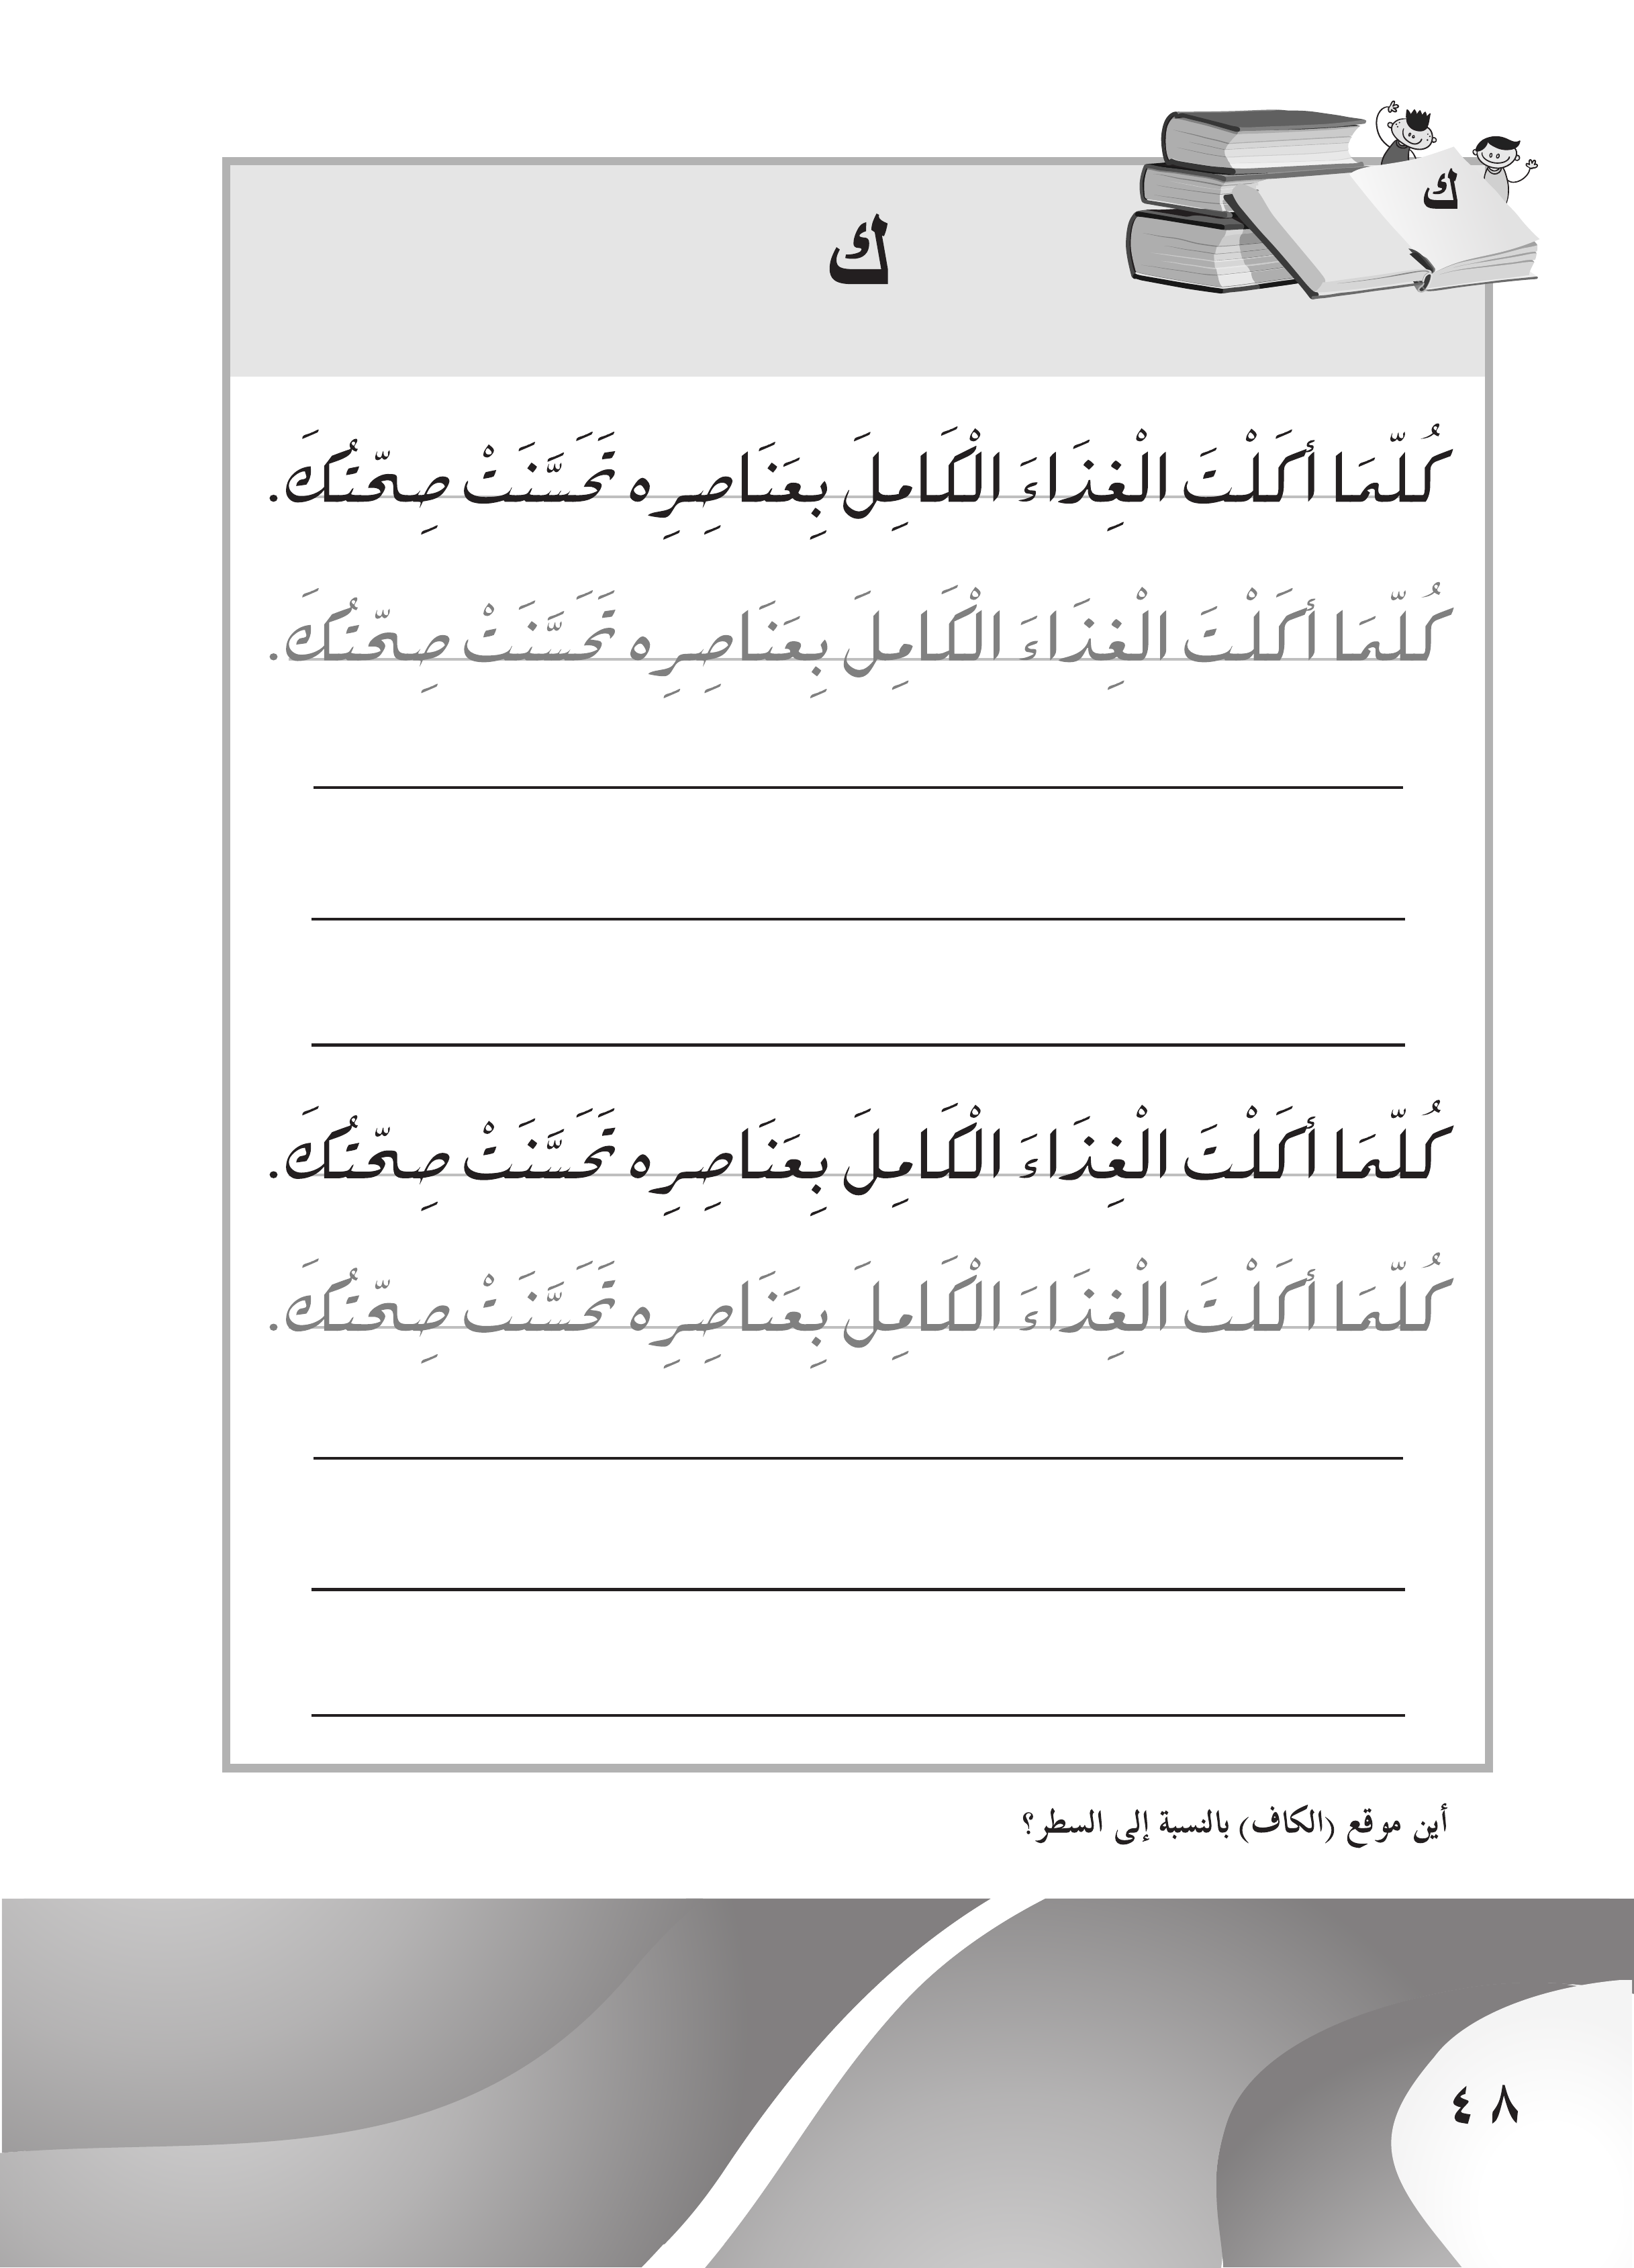 ك
ك
كُلّمَا أكَلْتَ الْغِذَاءَ الْكَامِلَ بِعَنَاصِرِه تَحَسَّنَتْ صِحّتُكَ.
كُلّمَا أكَلْتَ الْغِذَاءَ الْكَامِلَ بِعَنَاصِرِه تَحَسَّنَتْ صِحّتُكَ.
كُلّمَا أكَلْتَ الْغِذَاءَ الْكَامِلَ بِعَنَاصِرِه تَحَسَّنَتْ صِحّتُكَ.
كُلّمَا أكَلْتَ الْغِذَاءَ الْكَامِلَ بِعَنَاصِرِه تَحَسَّنَتْ صِحّتُكَ.
أين موقع (الكاف) بالنسبة إلى السطر؟
٤٨